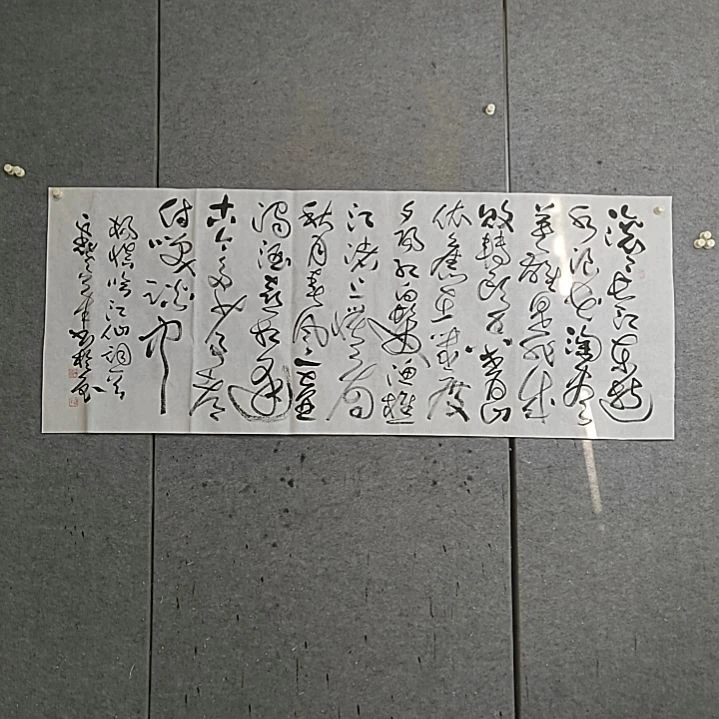 滚滚长江东逝
水浪花淘尽
英雄是非成
败转头空青山
依旧在几度
夕阳红白发渔樵
江渚上惯看
秋月春风一壶
浊酒喜相逢
古今多少事都
付笑谈中
杨慎临江仙词